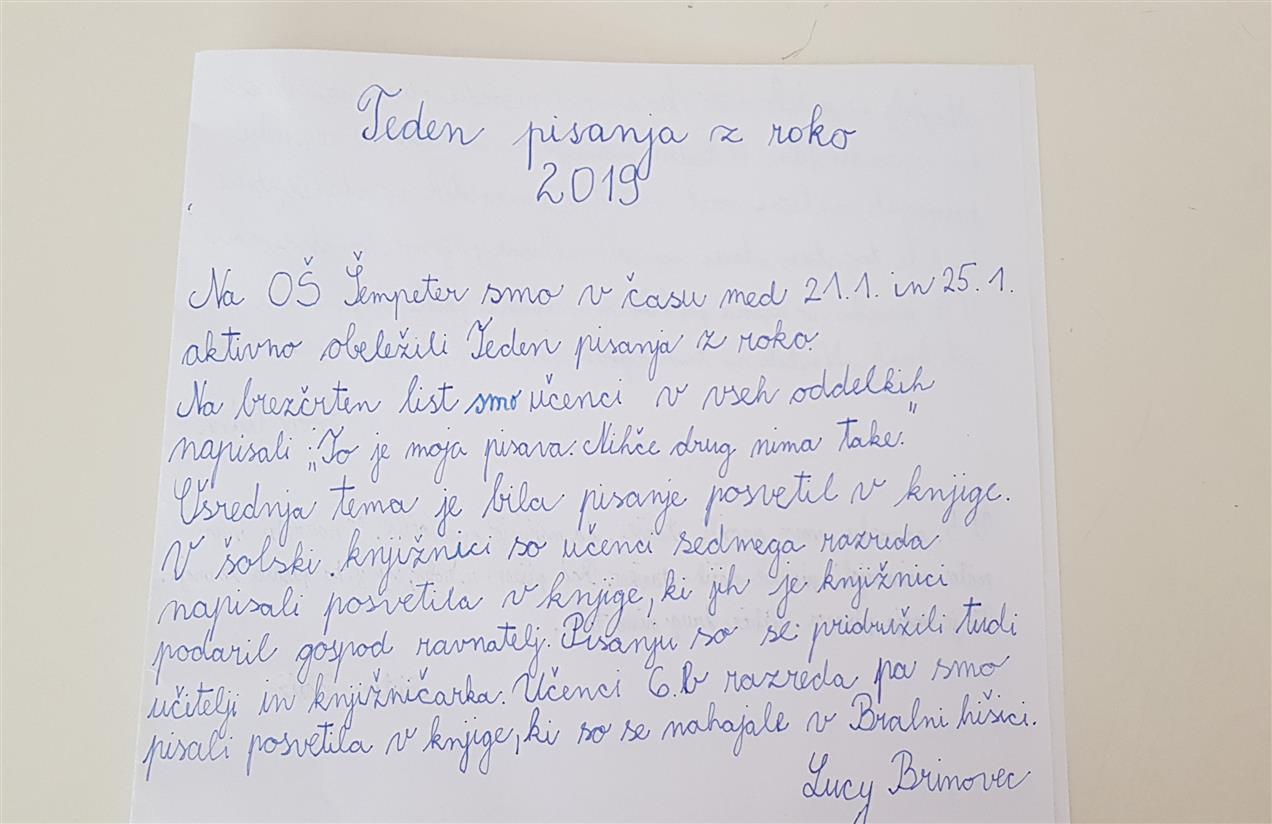 Teden pisanja z roko
2019
Na OŠ Šempeter smo v času med 21.1. in 25.1.
aktivno obeležili Teden pisanja z roko.
Na brezčrten list smo učenci v vseh oddelkih
napisali: "To je moja pisava. Nihče drug nima take."
Osrednja tema je bila pisanje posvetil v knjige.
V šolski knjižnici so učenci sedmega razreda
napisali posvetila v knjige, ki jih je knjižnici
podaril gospod ravnatelj. Pisanju so se pridružili tudi
učitelji in knjižničarka. Učenci 6.b razreda pa smo
pisali posvetila v knjige, ki so se nahajale v Bralni hišici.
Lucy Brinovec